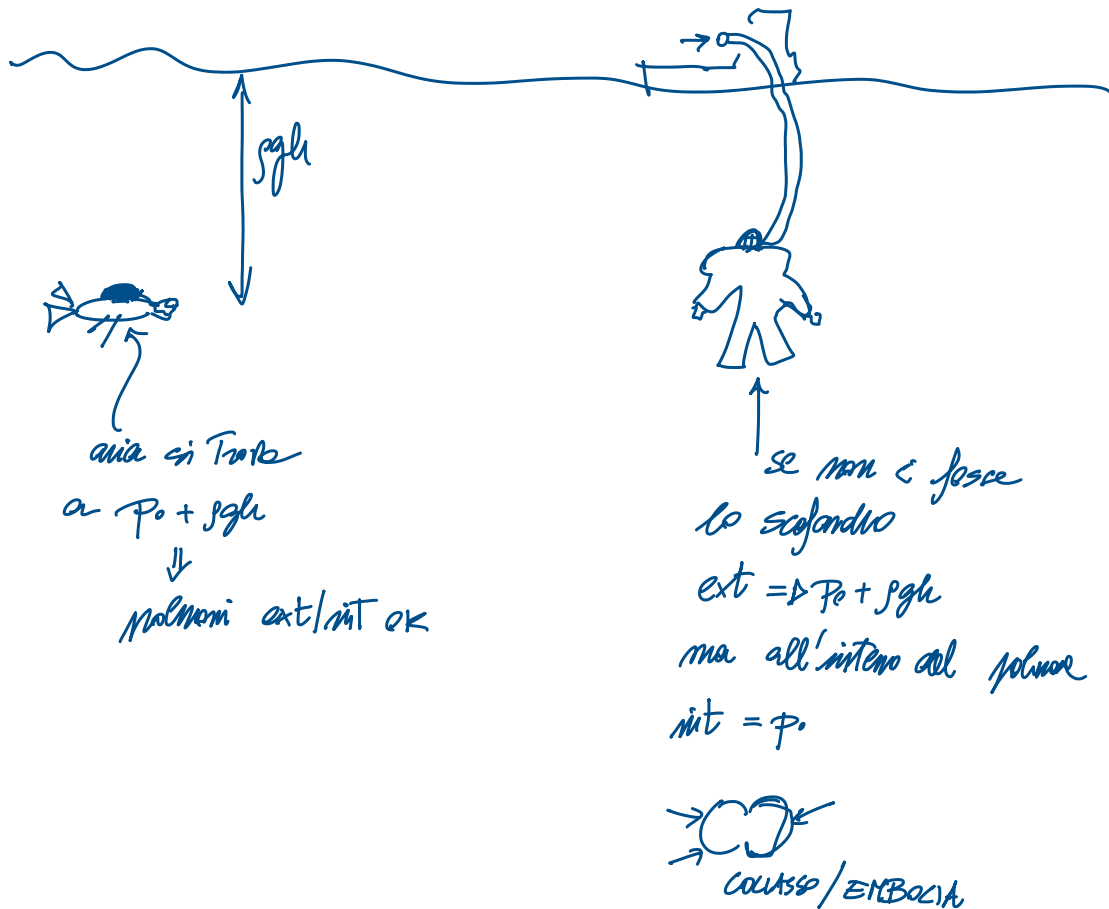 ρgh
aria si trova
a p₀ + ρgh
⇓
polmoni ext/int ok
se non ci fosse
lo scafandro
ext => p₀ + ρgh
ma all'interno del polmone
int = p₀
COLLASSO / EMBOLIA